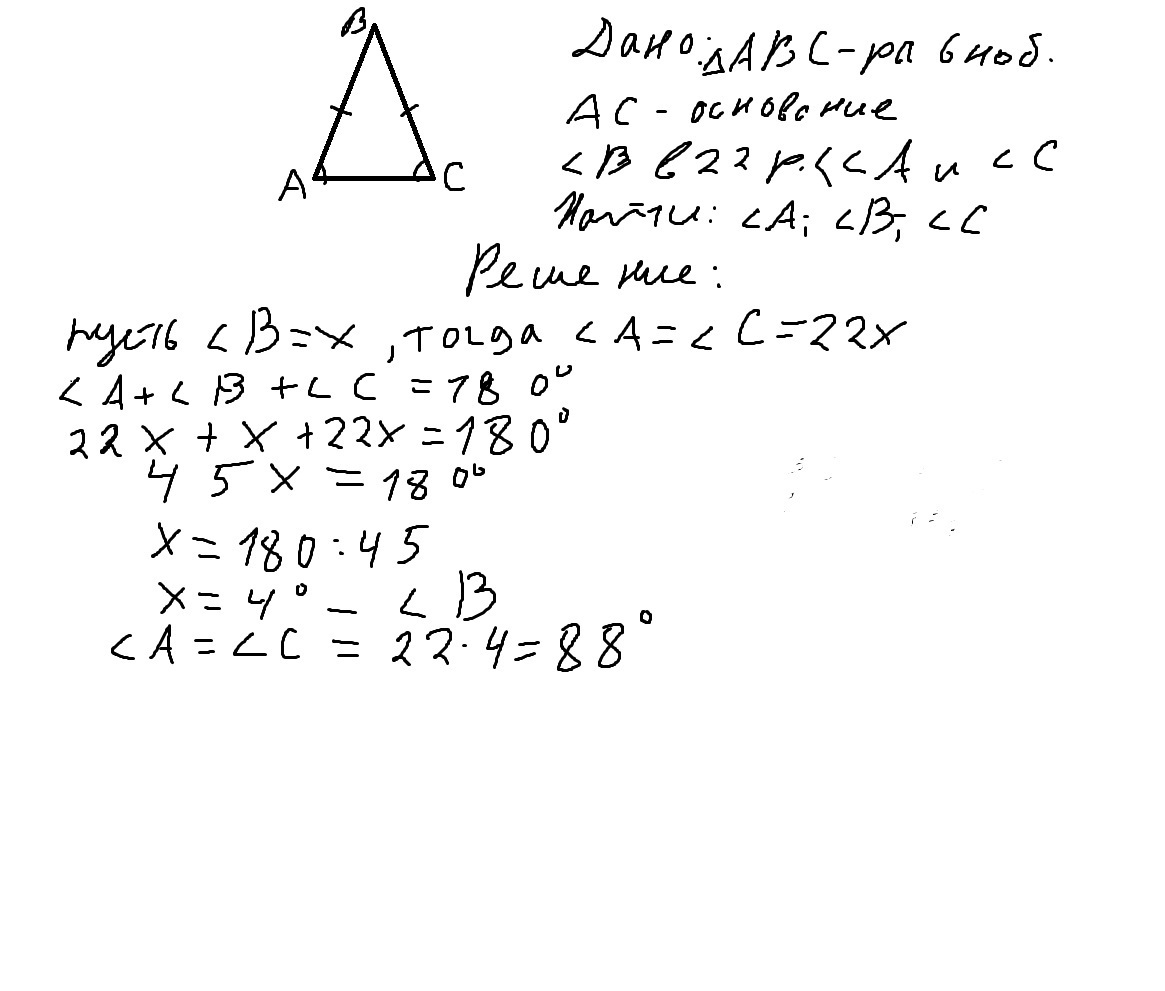 B
A
C
Дано: △ABC-равноб.
AC - основание
∠B в 22 р. < ∠A и ∠C
Найти: ∠A; ∠B; ∠C
Решение:
пусть ∠B=x, тогда ∠A=∠C=22x
∠A+∠B+∠C=180°
22x+x+22x=180°
45x=180°
x=180:45
x=4° – ∠B
∠A=∠C=22·4=88°